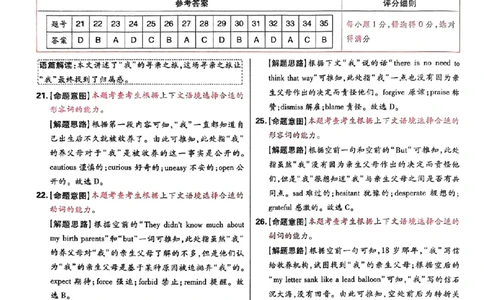 参考答案
评分细则
题号 21 22 23 24 25 26 27 28 29 30 31 32 33 34 35
答案 D B D A C B A C D B A D C
每小题1分,错选得0分,选对
得满分
语篇解读:本文讲述了“我”的寻亲之旅,这场寻亲之旅让
“我”最终找到了归属感。
21.[命题意图]本题考查考生根据上下文语境选择合适的
形容词的能力。
[解题思路]根据第一段内容可知,“我”一直都知道自
己出生后不久就被收养了。由此可推知,此处指“我”
的养父母对于“我”是被收养的这一事实是公开的。
cautious 谨慎的;curious 好奇的;uneasy 不安的;open 公
开的。故选 D。
22.[命题意图]本题考查考生根据上下文语境选择合适的
动词的能力。
[解题思路]根据空前的“They didn't know much about
my birth parents”和“but”一词可推知,此处指虽然“我”
的养父母对“我”的亲生父母了解的不多,但是他们认
为“我”的亲生父母是基于某种原因被迫抛弃“我”的。
expect 期待;force 强迫;forbid 禁止;remind 提醒。故
选 B。
[解题思路]根据下文“我”说的话“there is no need to
think that way”可推知,此处指“我”一点也没有因为亲
生父母作出的决定而责怪他们。forgive 原谅;praise 称
赞;dismiss 解雇;blame 责怪。故选 D。
25.[命题意图]本题考查考生根据上下文语境选择合适的
形容词的能力。
[解题思路]根据空前一句和空前的“But”可推知,此处
指虽然“我”没有因为亲生父母作出的决定而责怪他
们,但是“我”很想知道“我”与亲生父母之间是否有共
同点。sad 难过的;hesitant 犹豫的;desperate 极想的;
grateful 感激的。故选 C。
26.[命题意图]本题考查考生根据上下文语境选择合适的
副词的能力。
[解题思路]根据空前一句可知,18岁那年,“我”写信
给收养机构,试图找到“我”的亲生父母;根据空后的
“my letter sank like a lead balloon”可知,“我”写的信石
沉大海,没有回音。由此可推知,空处前后为转折关